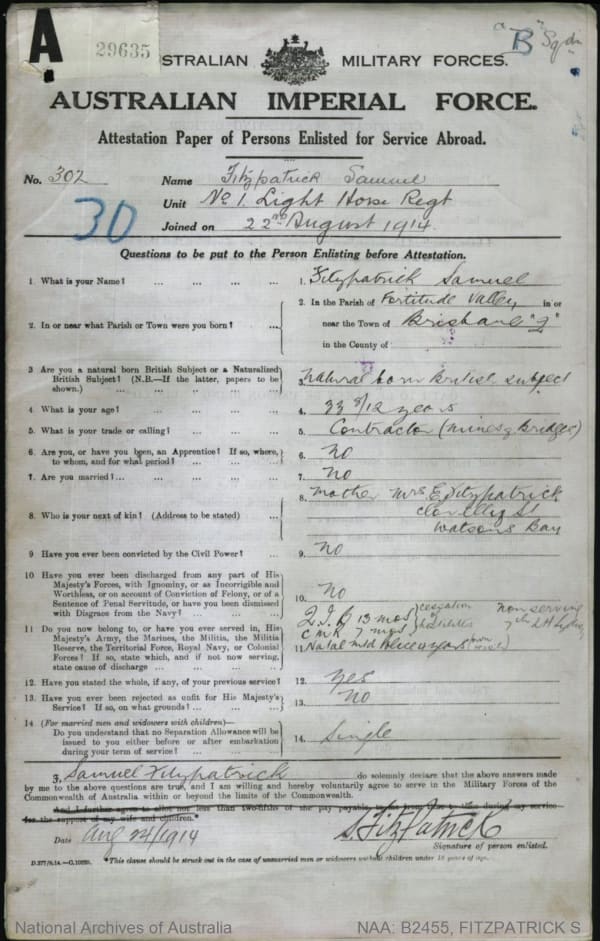 A
29635
"B" Sqdn
AUSTRALIAN MILITARY FORCES.
AUSTRALIAN IMPERIAL FORCE.
Attestation Paper of Persons Enlisted for Service Abroad.
No. 302 Name Fitzpatrick Samuel
30
Unit No 1. Light Horse Regt
Joined on 22nd August 1914.
Questions to be put to the Person Enlisting before Attestation.
1. What is your Name? ... ... ... ... 1. Fitzpatrick Samuel
2. In or near what Parish or Town were you born? ... 2. In the Parish of Fortitude Valley, in or
near the Town of Brisbane "Q"
in the County of
3 Are you a natural born British Subject or a Naturalized
British Subject? (N.B.—If the latter, papers to be
shown.) ... ... ... ... ... 3. natural born British subject
4. What is your age? ... ... ... ... 4. 33 8/12 years
5. What is your trade or calling? ... ... ... 5. Contractor (Mines & Bridges)
6. Are you, or have you been, an Apprentice? If so, where,
to whom, and for what period? ... ... ... 6. No
7. Are you married? ... ... ... ... 7. No
8. Who is your next of kin? (Address to be stated) ... 8. Mother Mrs E Fitzpatrick
Clovelly St
Watsons Bay
9 Have you ever been convicted by the Civil Power? ... 9. No
10 Have you ever been discharged from any part of His
Majesty's Forces, with Ignominy, or as Incorrigible and
Worthless, or on account of Conviction of Felony, or of a
Sentence of Penal Servitude, or have you been dismissed
with Disgrace from the Navy? ... ... ... 10. No
11 Do you now belong to, or have you ever served in, His
Majesty's Army, the Marines, the Militia, the Militia
Reserve, the Territorial Force, Royal Navy, or Colonial
Forces? If so, state which, and if not now serving,
state cause of discharge ... ... ...
13 mos cessation
7 mos hostilities
now serving
11. Natal Mtd Police
12. Have you stated the whole, if any, of your previous service? 12. Yes
13. Have you ever been rejected as unfit for His Majesty's
Service? If so, on what grounds? ... ... ... 13. No
14 (For married men and widowers with children)—
Do you understand that no Separation Allowance will be
issued to you either before or after embarkation
during your term of service? ... ... ... 14. Single
I, Samuel Fitzpatrick do solemnly declare that the above answers made
by me to the above questions are true, and I am willing and hereby voluntarily agree to serve in the Military Forces of the
Commonwealth of Australia within or beyond the limits of the Commonwealth.
And I further agree to allot not less than two-fifths of the pay payable to me from time to time during my service
for the support of my wife and children.*
Date Aug 24/1914 S Fitzpatrick
Signature of person enlisted.
*This clause should be struck out in the case of unmarried men or widowers without children under 18 years of age.
National Archives of Australia NAA: B2455, FITZPATRICK S